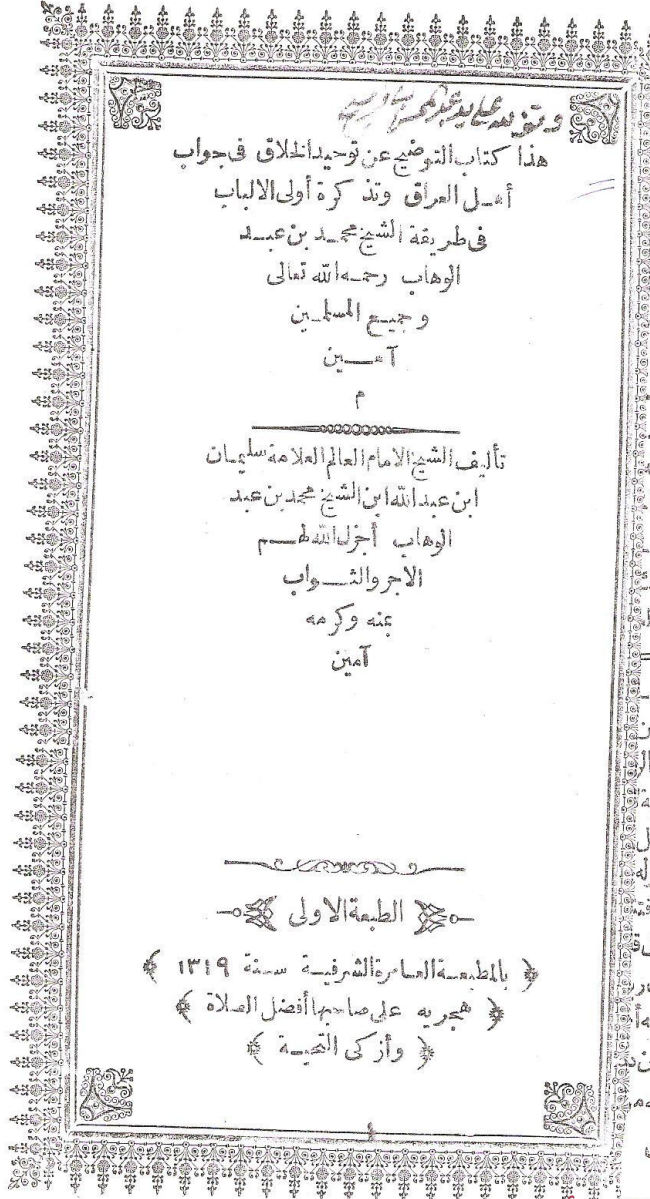 هذا كتاب التوضيح عن توحيد الخلاق فى جواب
أهـل العراق وتذكرة أولى الالباب
فى طريقة الشيخ محمد بن عبـد
الوهاب رحمـه الله تعالى
وجميـع المسلمـين
آمـــين
م
تأليف الشيخ الامام العالم العلامة سليمـان
ابن عبد الله ابن الشيخ محمد بن عبد
الوهاب أجزل الله لهـــم
الاجر والثــواب
بمنه وكرمه
آمين
الطبعة الاولى
﴿ بالمطبعـة العـامرة الشرفيـة سـنة ١٣١٩ ﴾
﴿ هجريه على صاحبها أفضل الصلاة ﴾
﴿ وأزكى التحيـة ﴾